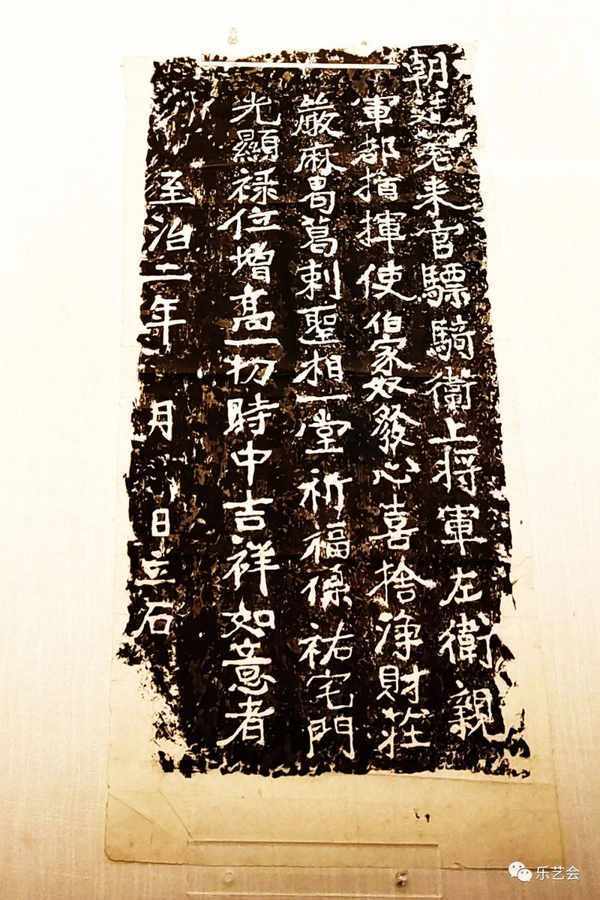 朝廷差来官驃騎衛上将軍左衛親
軍都指揮使伯家奴發心喜捨净財莊
嚴麻曷葛剌聖相一堂祈福保祐宅門
光顯禄位增高一切時中吉祥如意者
至治二年 月 日立石
乐艺会